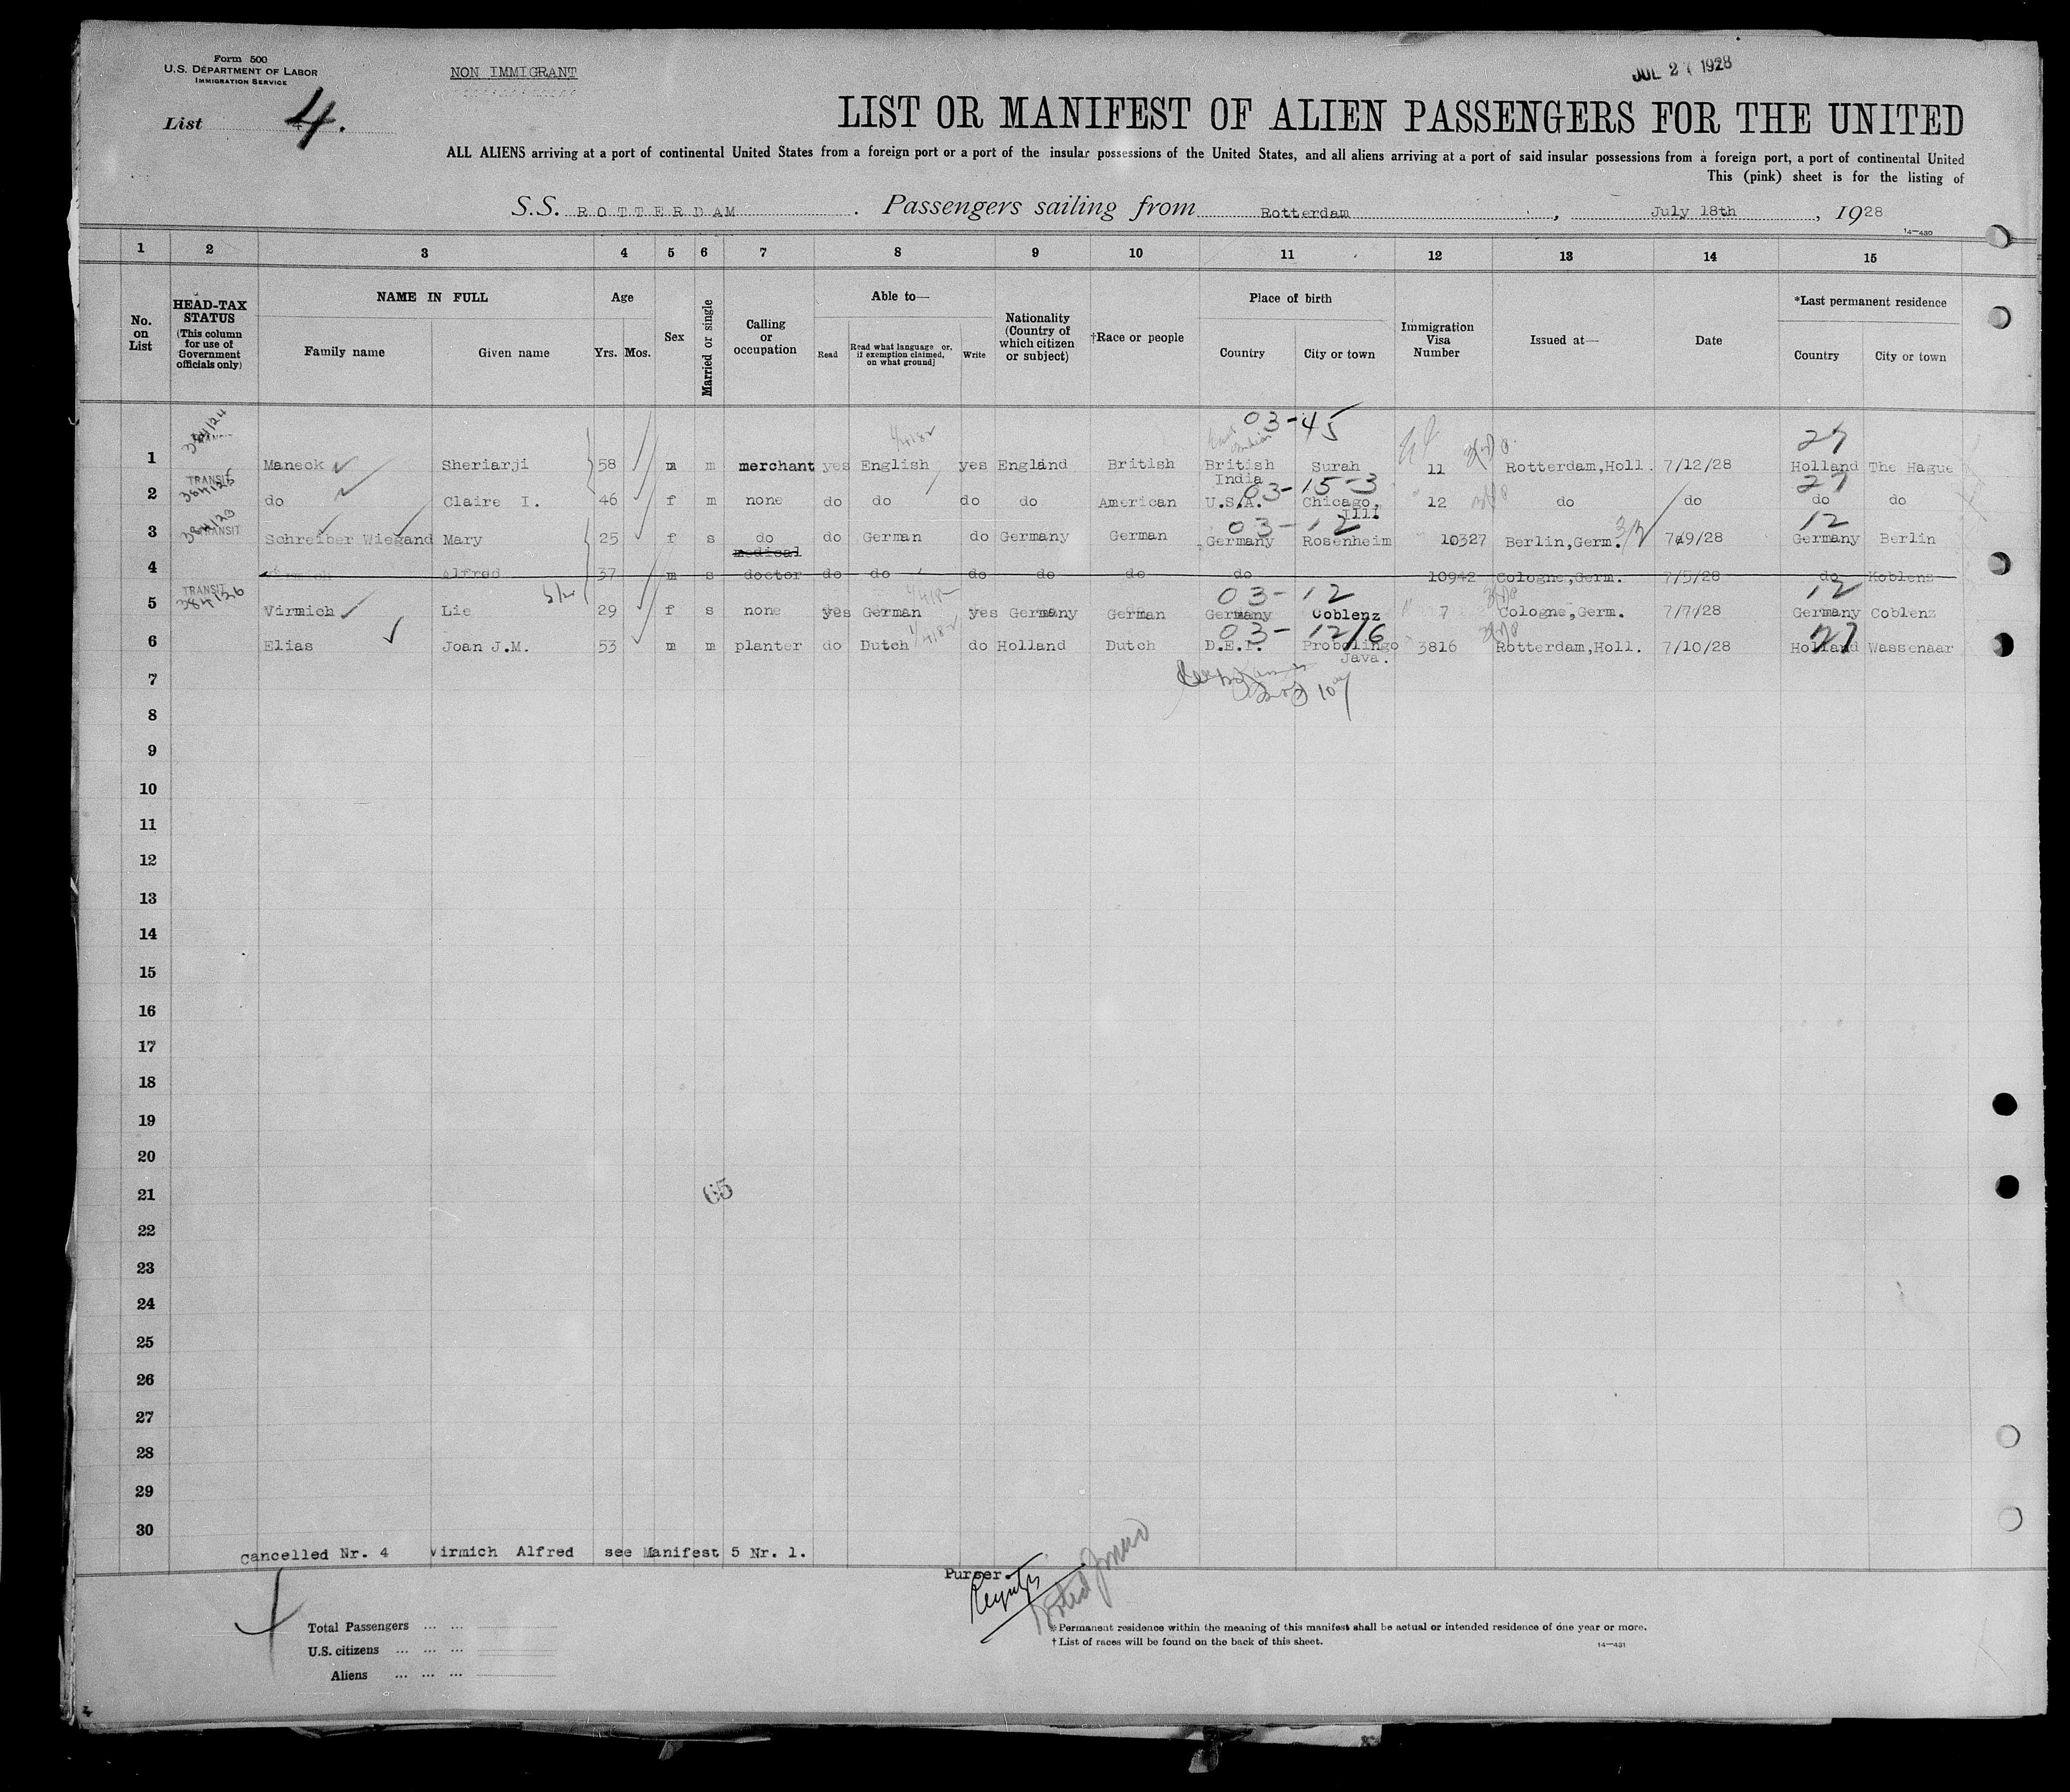 Form 500
U.S. DEPARTMENT OF LABOR
IMMIGRATION SERVICE
NON IMMIGRANT
JUL 2 1928
List 4.
LIST OR MANIFEST OF ALIEN PASSENGERS FOR THE UNITED
ALL ALIENS arriving at a port of continental United States from a foreign port or a port of the insular possessions of the United States, and all aliens arriving at a port of said insular possessions from a foreign port, a port of continental United
This (pink) sheet is for the listing of
S.S. ROTTERDAM . Passengers sailing from Rotterdam , July 18th , 1928
14—430
1 2 3 4 5 6 7 8 9 10 11 12 13 14 15
No. on List
HEAD-TAX STATUS (This column for use of Government officials only)
NAME IN FULL
Family name Given name
Age
Yrs. Mos.
Sex
Married or single
Calling or occupation
Able to—
Read Read what language [or, if exemption claimed, on what ground] Write
Nationality (Country of which citizen or subject)
†Race or people
Place of birth
Country City or town
Immigration Visa Number
Issued at—
Date
*Last permanent residence
Country City or town
03-45 27
1 384124 TRANSIT Maneck Sheriarji 58 m m merchant yes English yes England British British India Surah 11 Rotterdam,Holl. 7/12/28 Holland The Hague
03-15-3 27
2 TRANSIT 384125 do Claire I. 46 f m none do do do do American U.S.A. Chicago, Ill. 12 do do do do
03-12 12
3 384123 TRANSIT Schreiber Wiegand Mary 25 f s do do German do Germany German Germany Rosenheim 10327 Berlin,Germ. 7/9/28 Germany Berlin
4 Virmich Alfred 37 m s medical doctor do do do do do do 10942 Cologne,Germ. 7/5/28 do Koblenz
03-12 12
5 TRANSIT 384126 Virmich Lie 29 f s none yes German yes Germany German Germany Coblenz 7 Cologne,Germ. 7/7/28 Germany Coblenz
03-12/6 27
6 Elias Joan J.M. 53 m m planter do Dutch do Holland Dutch D.E.I. Probolingo Java. 3816 Rotterdam,Holl. 7/10/28 Holland Wassenaar
7
8
9
10
11
12
13
14
15
16
17
18
19
20
21
65
22
23
24
25
26
27
28
29
30
Cancelled Nr. 4 Virmich Alfred see Manifest 5 Nr. 1.
Purser.
Total Passengers ... ...
U.S. citizens ... ... ...
Aliens ... ... ...
* Permanent residence within the meaning of this manifest shall be actual or intended residence of one year or more.
† List of races will be found on the back of this sheet.
14—431